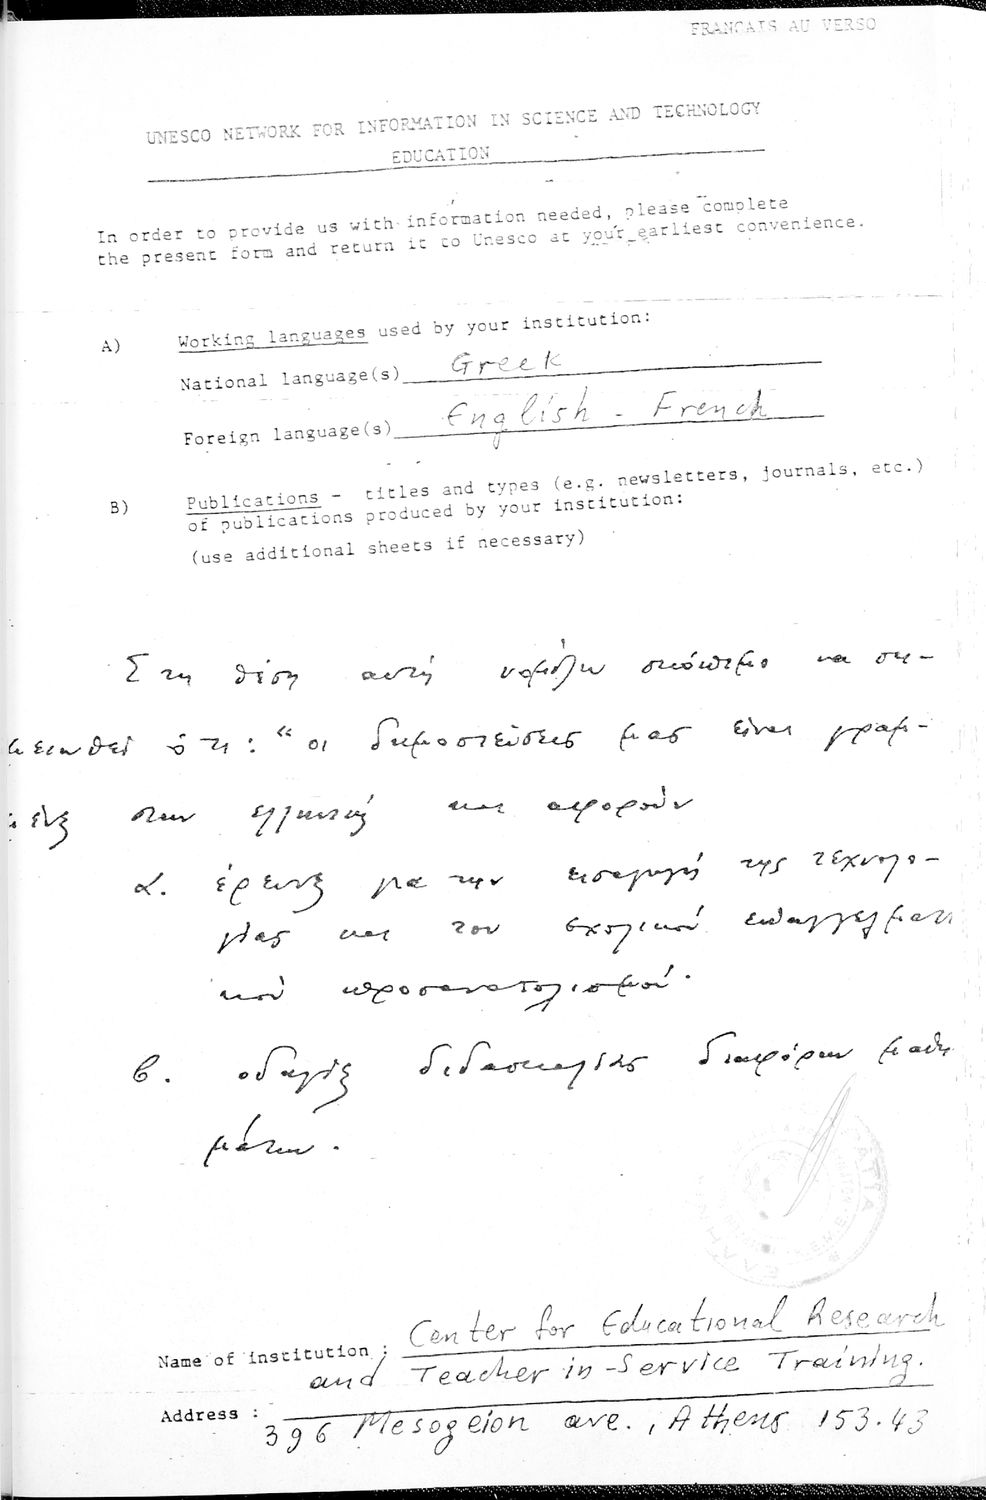 FRANCAIS AU VERSO
UNESCO NETWORK FOR INFORMATION IN SCIENCE AND TECHNOLOGY
EDUCATION
In order to provide us with information needed, please complete
the present form and return it to Unesco at your earliest convenience.
A) Working languages used by your institution:
National language(s) Greek
Foreign language(s) English - French
B) Publications - titles and types (e.g. newsletters, journals, etc.)
of publications produced by your institution:
(use additional sheets if necessary)
Στη θέση αυτή νομίζω σκόπιμο να ση-
μειωθεί ότι: “οι δημοσιεύσεις μας είναι γραμ-
μένες στην ελληνική και αφορούν
α. έρευνες για την εισαγωγή της τεχνολο-
γίας και του σχολικού επαγγελματι
κού προσανατολισμού.
β. οδηγίες διδασκαλίας διαφόρων μαθη
μάτων.
Name of institution : Center for Educational Research
and Teacher in-Service Training.
Address :
396 Mesogeion ave., Athens 153.43